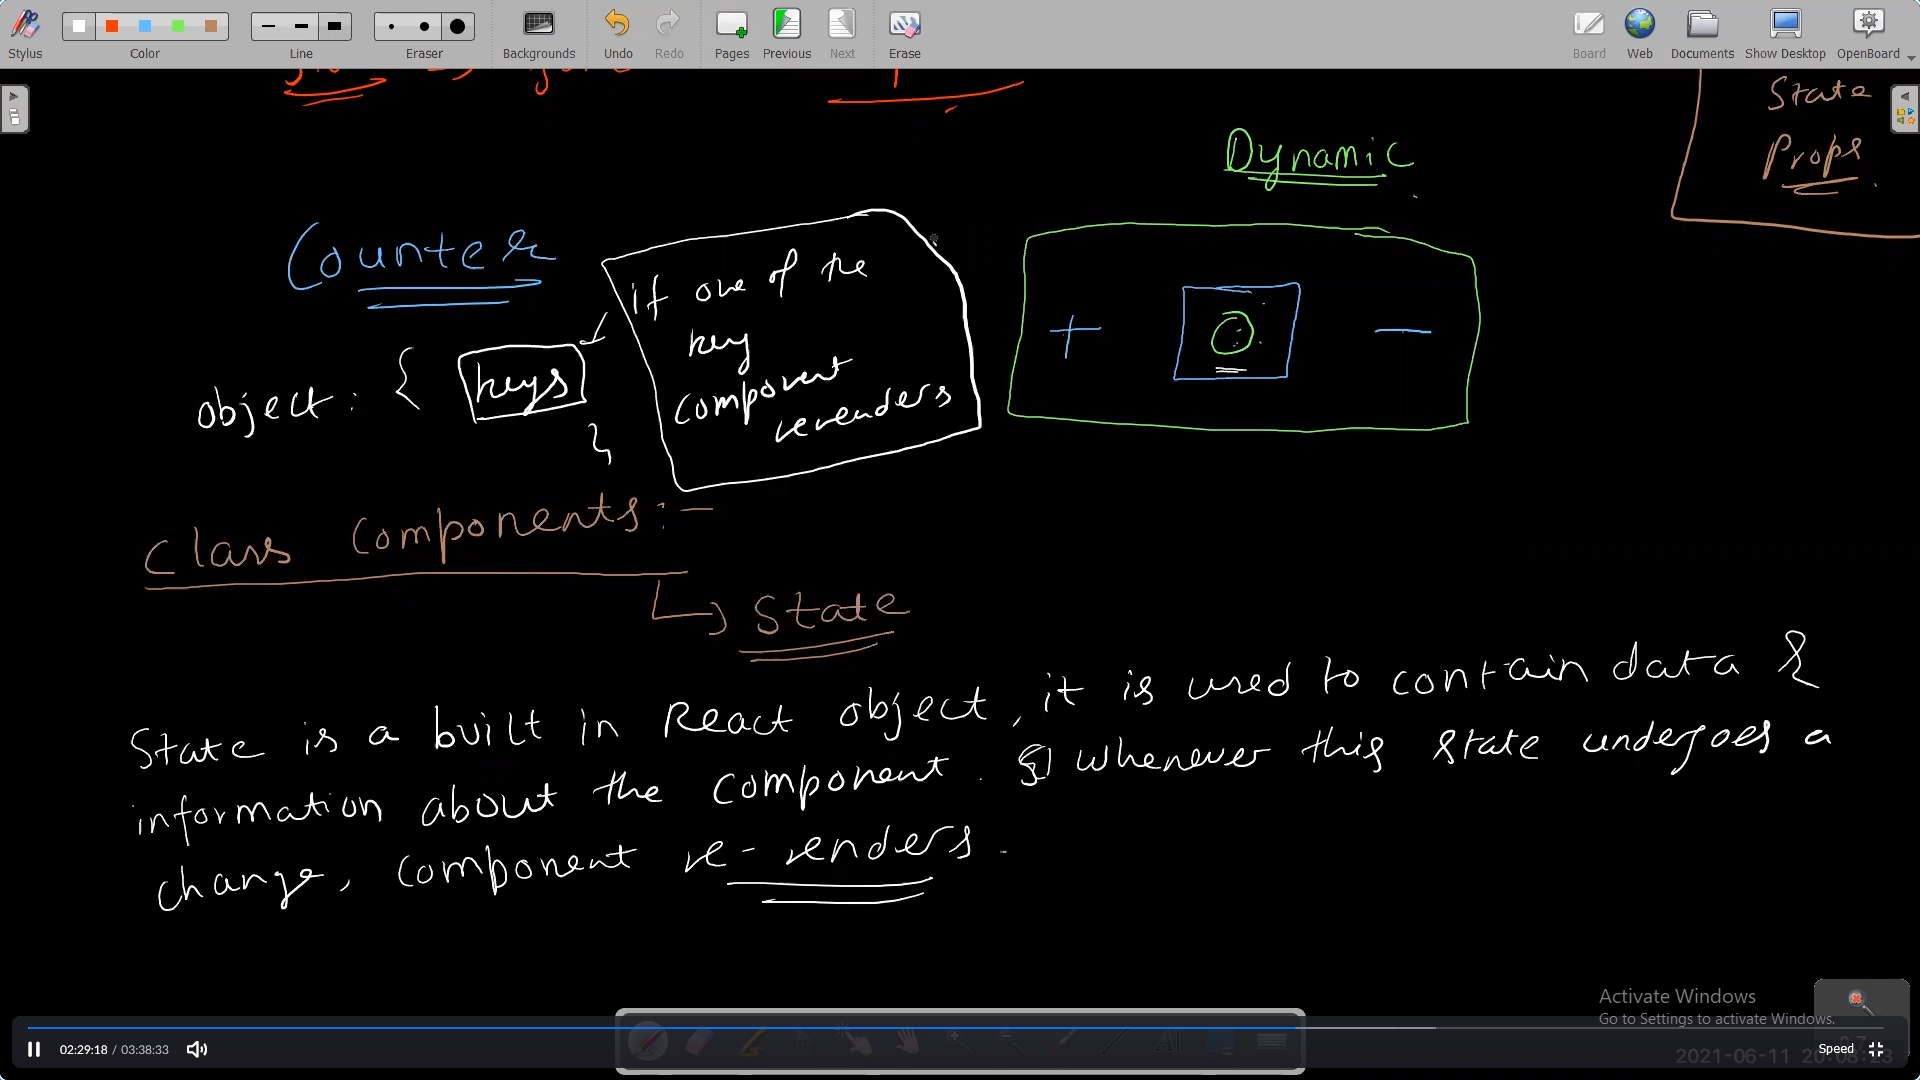 Stylus Color Line Eraser Backgrounds Undo Redo Pages Previous Next Erase Board Web Documents Show Desktop OpenBoard
State
Props
Dynamic
Counter
if one of the
key
component
rerenders
object : { keys
}
+ 0 −
Class Components :-
State
State is a built in React object, it is used to contain data &
information about the component. Whenever this state undergoes a
change, component re-renders.
Activate Windows
Go to Settings to activate Windows.
02:29:18 / 03:38:33
Speed
2021-06-11 20:08:23